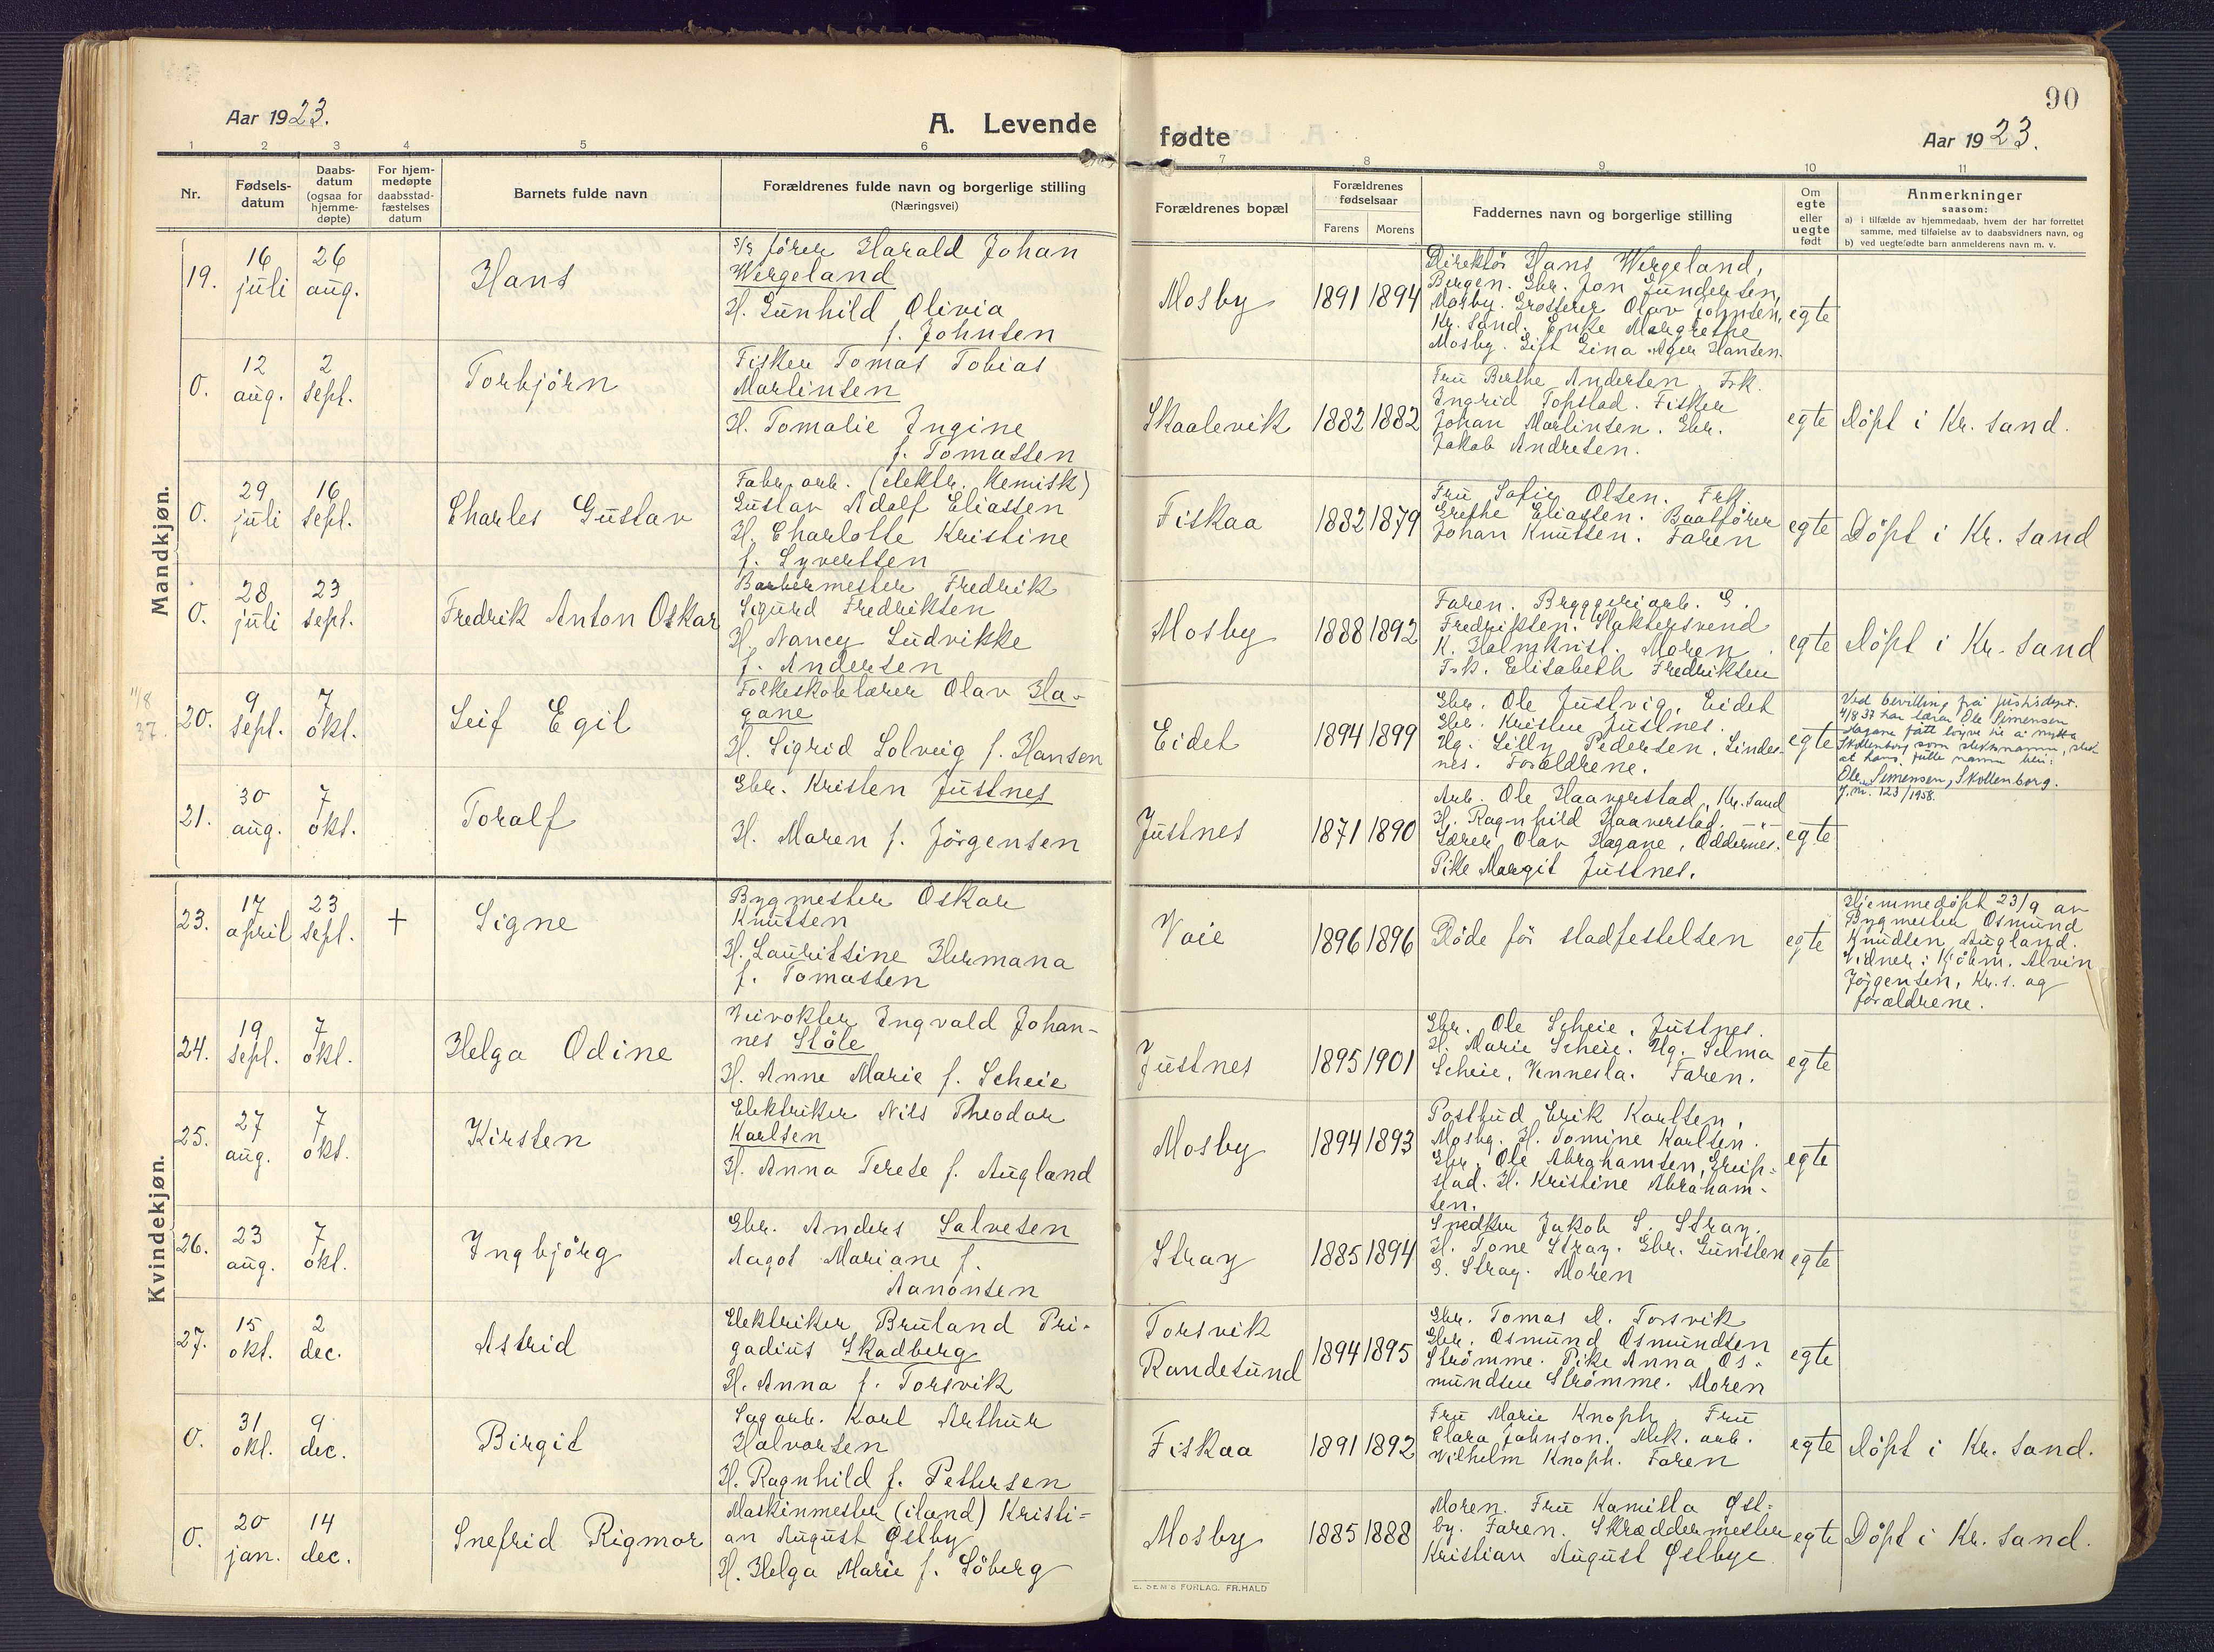 90
Aar 1923.
A. Levende
fødte
Aar 1923.
1 2 3 4 5 6 7 8 9 10 11
Nr.
Fødsels-
datum
Daabs-
datum
(ogsaa for
hjemme-
døpte)
For hjem-
medøpte
daabsstad-
fæstelses
datum
Barnets fulde navn
Forældrenes fulde navn og borgerlige stilling
(Næringsvei)
Forældrenes bopæl
Forældrenes
fødselsaar
Farens Morens
Faddernes navn og borgerlige stilling
Om
egte
eller
uegte
født
Anmerkninger
saasom:
a) i tilfælde av hjemmedaab, hvem der har forrettet
samme, med tilføielse av to daabsvidners navn, og
b) ved uegtefødte barn anmelderens navn m. v.
Mandkjøn.
19.
16
juli
26
aug.
Hans
fører Harald Johan
Wergeland
H. Gunhild Olivia
f. Johnsen
Mosby
1891 1894
Direktör Hans Wergeland,
Bergen. Gbr. Jon Gundersen,
Mosby. Grosserer Olav Johnsen,
Kr. sand. Enke Margrethe
Mosby. Gift Gina Ager Hansen.
egte
0.
12
aug.
2
sept.
Torbjörn
Fisker Tomas Tobias
Martinsen
H. Tomalie Ingine
f. Tomassen
Skaalevik
1882 1882
Fru Berthe Andersen. Frk.
Ingrid Topstad. Fisker
Johan Martinsen. Gbr.
Jakob Andresen.
egte
Döpt i Kr. sand.
0.
29
juli
16
sept.
Charles Gustav
Fabr. arb. (elektr. kemisk)
Gustav Adolf Eliassen
H. Charlotte Kristine
f. Syvertsen
Fiskaa
1882 1879
Fru Sofie Olsen. Frk.
Grethe Eliassen. Baatförer
Johan Knutsen. Faren
egte
Döpt i Kr. sand
0.
28
juli
23
sept.
Fredrik Anton Oskar
Barbermester Fredrik
Sigurd Fredriksen
H. Nancy Ludvikke
f. Andersen
Mosby
1888 1892
Faren. Bryggeriarb. G.
Fredriksen. Slaktersvend
K. Holmkvist. Moren.
Frk. Elisabeth Fredriksen
egte
Döpt i Kr. sand
11/8
37.
20.
9
sept.
7
okt.
Leif Egil
Folkeskolelærer Olav Ha-
gane
H. Sigrid Solveig f. Hansen
Eidet
1894 1899
Gbr. Ole Justvig, Eidet
Gbr. Kristen Justnes.
Ug. Lilly Pedersen, Lindes-
nes. Forældrene.
egte
Ved bevilling frå justisdept.
4/8 37 har lærar Ole Simensen
Hagane fått löyve til å nytta
Skollenborg som slektsnamn, slik
at hans fulle namn blir:
Ole Simensen Skollenborg.
J.nr. 123/1958.
21.
30
aug.
7
okt.
Toralf
Gbr. Kristen Justnes
H. Maren f. Jörgensen
Justnes
1871 1890
Arb. Ole Haaverstad, Kr. sand
H. Ragnhild Haaverstad. —"—
Lærer Olav Hagane, Oddernes.
Pike Margit Justnes.
egte
Kvindekjøn.
23.
17
april
23
sept.
+
Signe
Bygmester Oskar
Knutsen
H. Lauritsine Hermana
f. Tomassen
Voie
1896 1896
Döde för stadfestelsen
egte
Hjemmedöpt 23/9 av
Bygmester Osmund
Knudsen, Augland.
Vidner: Kjöbm. Alvin
Jörgensen, Kr.s. og
forældrene.
24.
19
sept.
7
okt.
Helga Odine
Veivokter Ingvald Johan-
nes Stöle
H. Anne Marie f. Scheie
Justnes
1895 1901
Gbr. Ole Scheie, Justnes.
H. Marie Scheie. Ug. Selma
Scheie, Vennesla. Faren.
egte
25.
27
aug.
7
okt.
Kirsten
Elektriker Nils Theodor
Karlsen
H. Anna Terese f. Augland
Mosby
1894 1893
Postbud Erik Karlsen,
Mosby. H. Tomine Karlsen.
Gbr. Ole Abrahamsen, Greip-
stad. H. Kristine Abraham-
sen.
egte
26.
23
aug.
7
okt.
Ingbjörg
Gbr. Anders Salvesen
Aagot Mariane f.
Aanonsen
Stray
1885 1894
Snedker Jakob S. Stray.
H. Tone Stray. Gbr. Gunsten
G. Stray. Moren
egte
27.
15
okt.
2
dec.
Astrid
Elektriker Bruland Pri-
gadius Skadberg
H. Anna f. Torsvik
Torsvik
Randesund
1894 1895
Gbr. Tomas A. Torsvik
Gbr. Osmund Osmundsen
Strömme. Pike Anna Os-
mundsen Strömme. Moren
egte
0.
31
okt.
9
dec.
Birgit
Sagarb. Karl Arthur
Halvorsen
H. Ragnhild f. Pettersen
Fiskaa
1891 1892
Fru Marie Knoph. Fru
Clara Johnson. Mek. arb.
Wilhelm Knoph. Faren
egte
Döpt i Kr. sand.
0.
20
jan.
14
dec.
Snefrid Rigmor
Maskinmester (iland) Kristi-
an August Østby
H. Helga Marie f. Söberg
Mosby
1885 1888
Moren. Fru Kamilla Øst-
by. Faren. Skræddermester
Kristian August Østbye
egte
Döpt i Kr. sand.
E. SEM'S FORLAG. FR.HALD